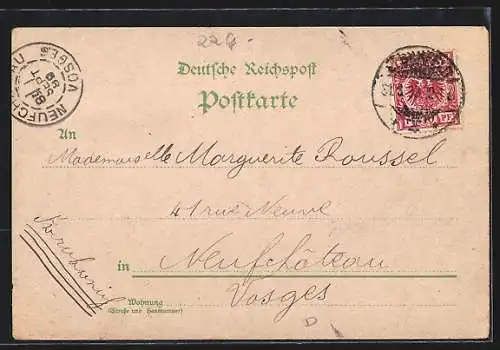 22g
NEUFCH AU
VOSGES
Deutsche Reichspost
Postkarte
An
Mademoiselle Marguerite Roussel
41 rue Neuve
in Neufchâteau
Vosges
Wohnung
(Straße und Hausnummer)
D